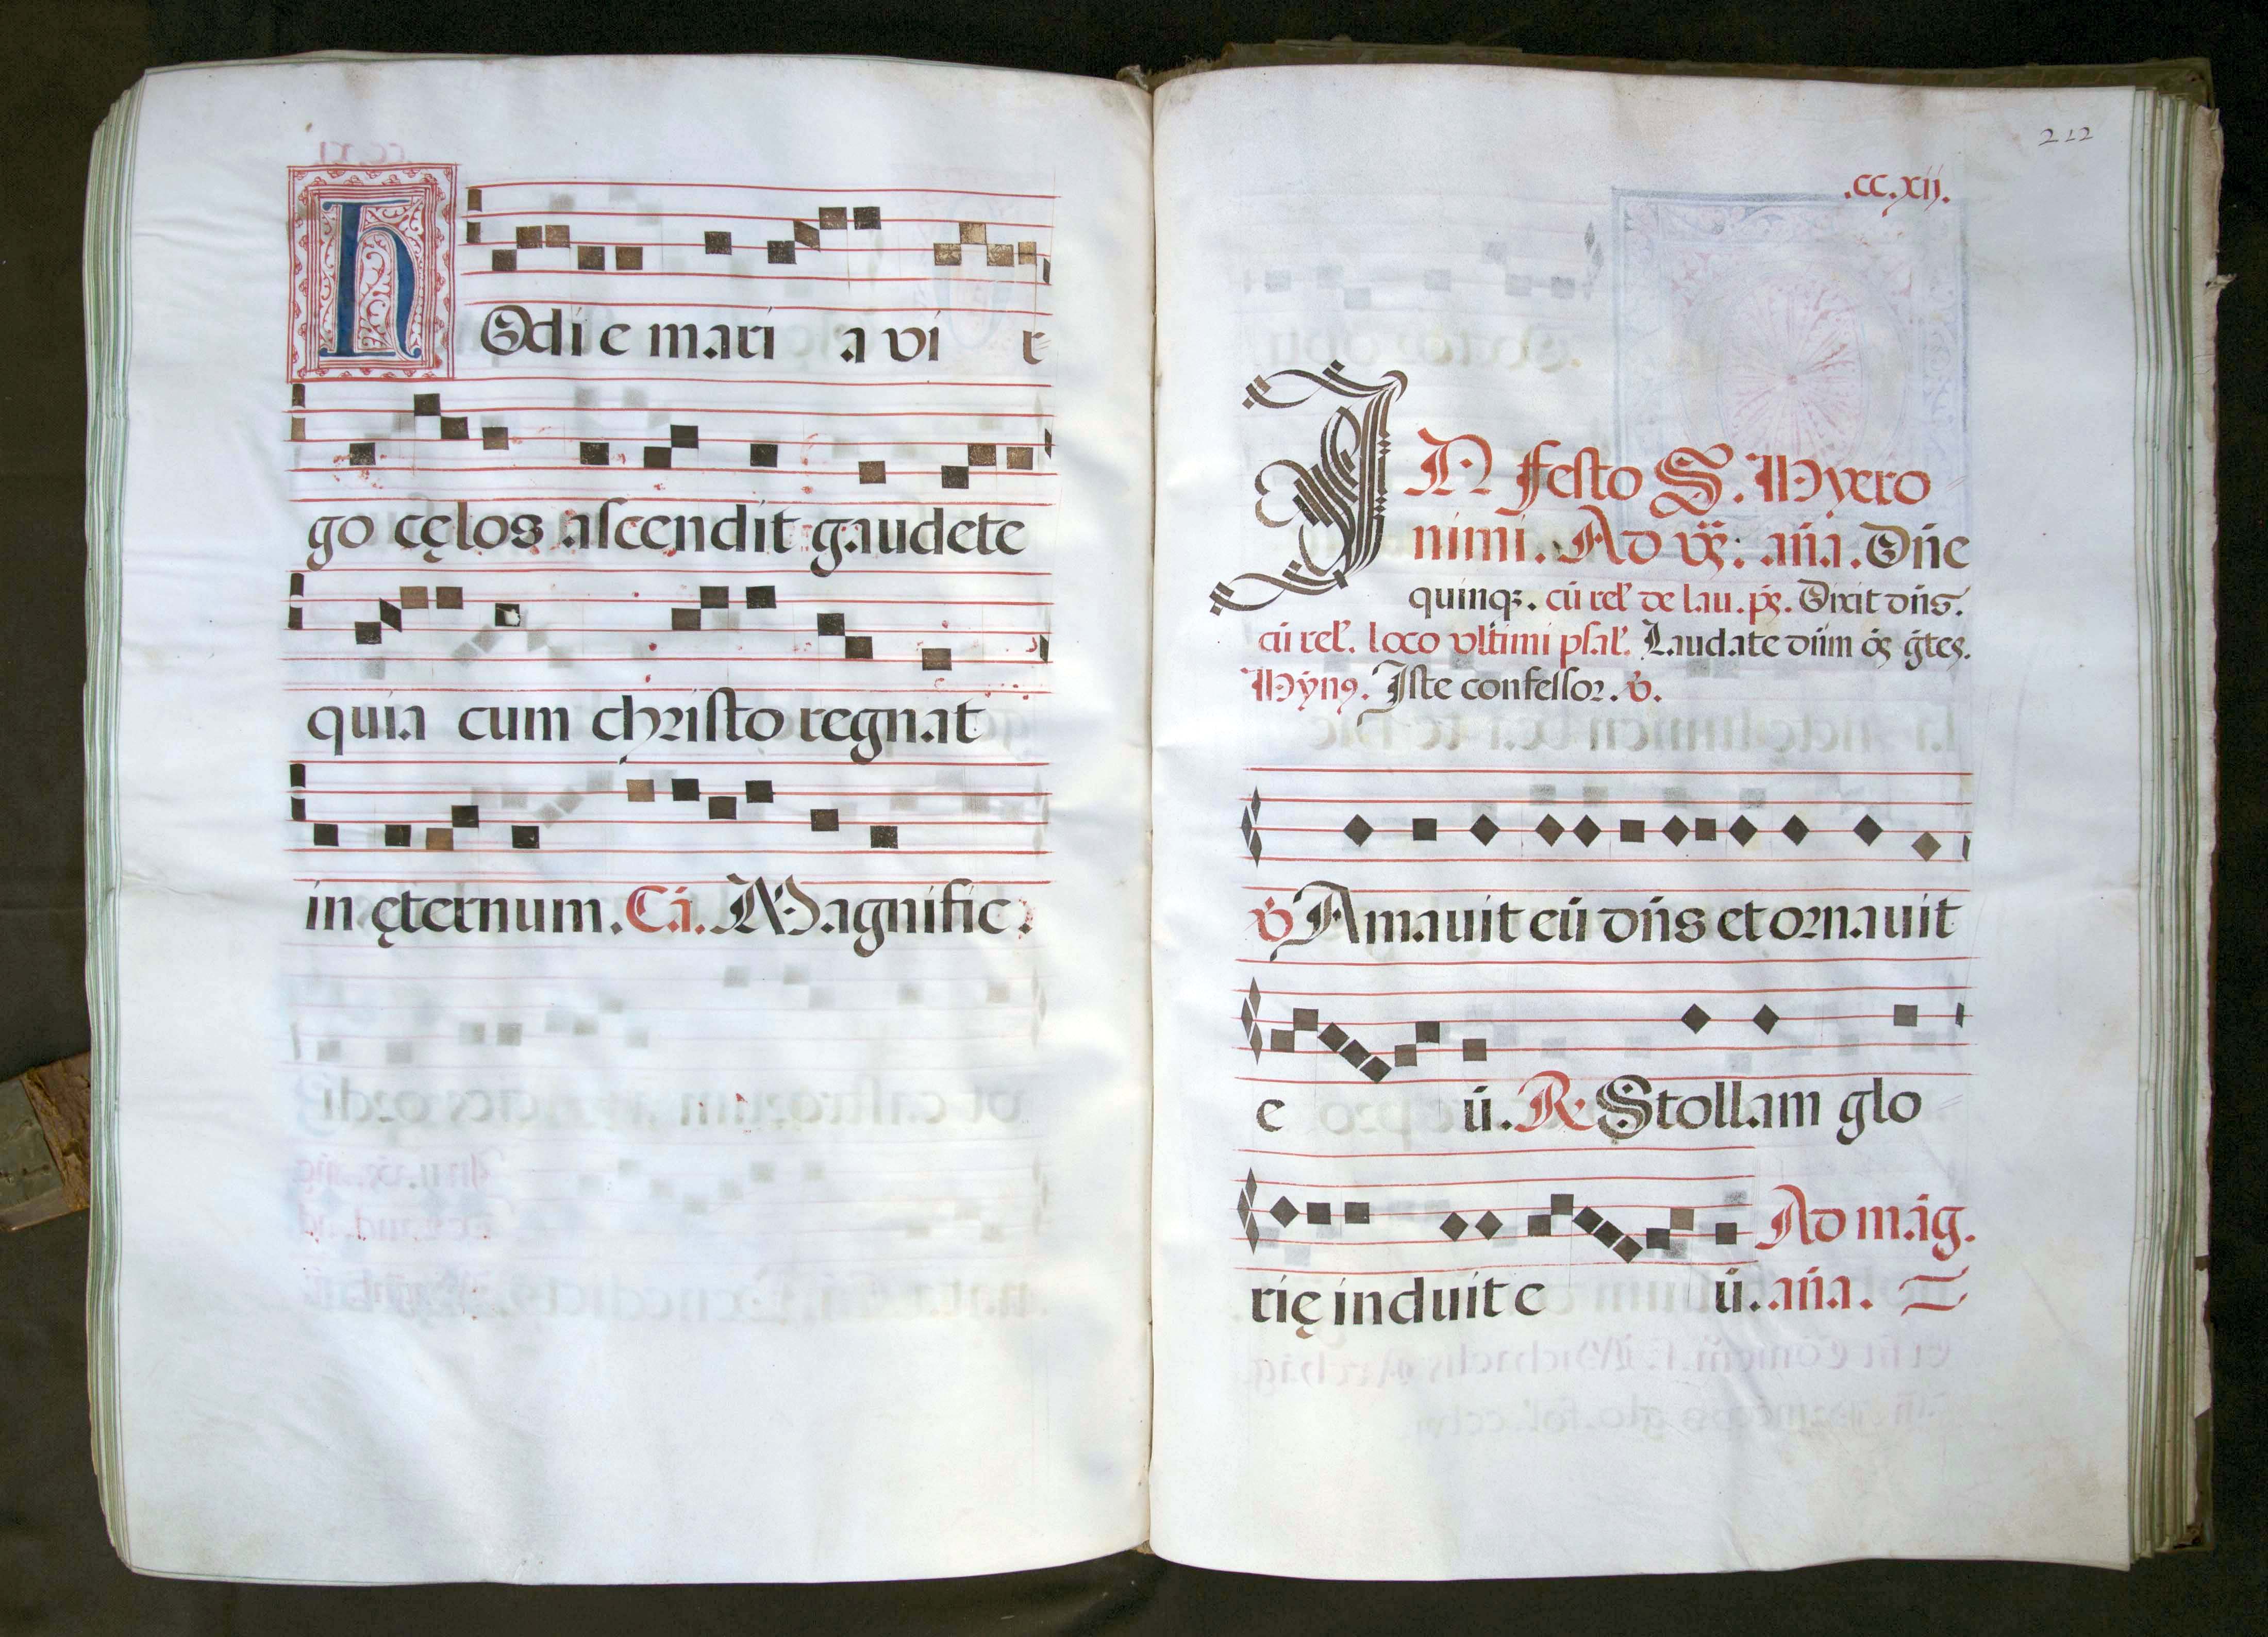 hOdi e mari a vi r
go cęlos ascendit gaudete
quia cum christo regnat
in ęternum. Cā. Magnific.
212
.cc.xij.
IN festo S. Hyero
nimi. Ad vs̄: an̄a. Dn̄e
quinqꝫ. cū rel' de lau. ps̄. Dixit dn̄s.
cū rel'. loco vltimi psal'. Laudate dn̄m ōs ḡtes.
Hyn9. Iste confessor. v̄.
v̄ Amauit eū dn̄s et ornauit
e ū. R Stollam glo
rię induit e ū. an̄a.
Ad māg.